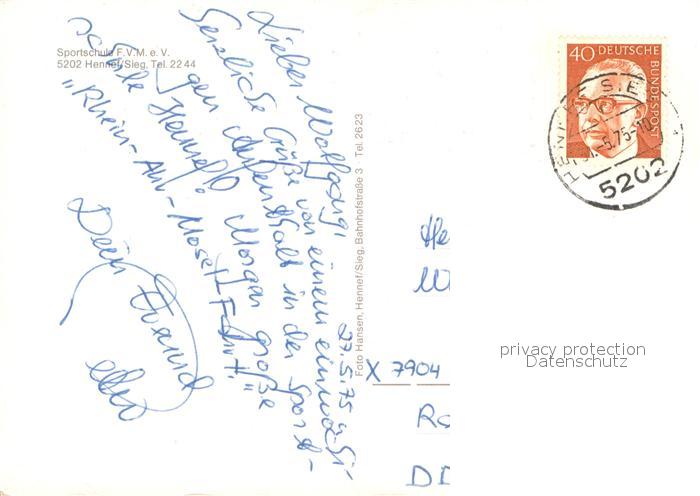 Sportschule F.V.M. e. V.
5202 Hennef/Sieg, Tel. 22 44
27.5.75
Lieber Wolfgang!
Herzliche Grüße von einem einwöchi-
gen Aufenthalt in der Sport-
schule Hennef! Morgen große
"Rhein-Ahr-Mosel-Fahrt!"
Dein Freund
Foto Hansen, Hennef/Sieg, Bahnhofstraße 3 Tel. 2623
40 DEUTSCHE
BUNDESPOST
HENNEF SIE
.5.75-1
5202
He
W
X 7904
Ro
DD
privacy protection
Datenschutz